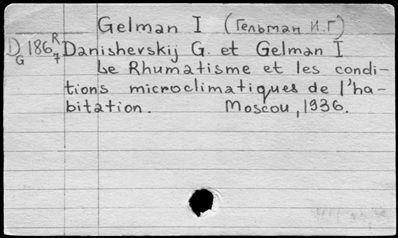 Gelman I (Гельман И.Г)
D 186 R Danishevskij G. et Gelman I
G 7 Le Rhumatisme et les condi-
tions microclimatiques de l'ha-
bitation. Moscou, 1936.